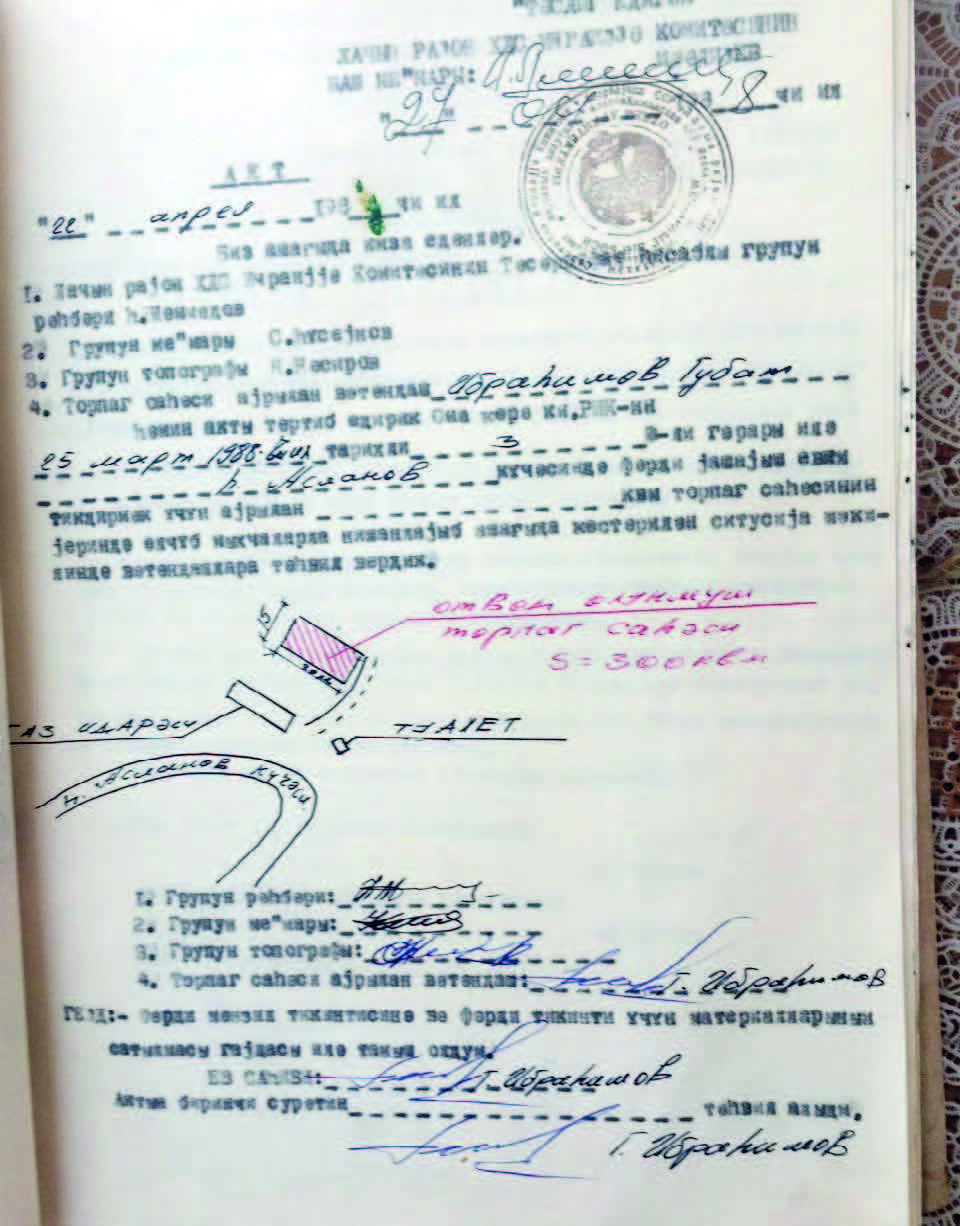 "ТӘСДИГ ЕДИРӘМ"
ЛАЧЫН РАЈОН ХДС ИҸРАИЈЈӘ КОМИТӘСИНИН
БАШ МЕ"МАРЫ:
"27" 198 8 чи ил
АКТ
"22" апрел 198 чи ил
Биз ашағыда имза едәнләр.
1. Лачын рајон ХДС Иҹраијјә Комитәсинин групун
рәһбәри Һ.Мәммәдов
2. Групун ме"мары С.Һүсејнов
3. Групун топографы Н.Нәсиров
4. Торпаг саһәси ајрылан вәтәндаш Ибраһимов Губат
һәмин акты тәртиб едирик Она ҝөрә ки, РИК-нин
25 март 1988-ҹи ил тарихли 3 №-ли гәрары илә
Һ. Асланов күчәсиндә фәрди јашајыш евини
тикдирмәк үчүн ајрылан квм торпаг саһәсинин
јериндә өлчүб мыхчаларла нишанлајыб ашағыда ҝөстәрилән ситусија шәк-
линдә вәтәндашлара тәһвил вердик.
отвом олунмуш
торпаг саһәси
S = 300 квм
15
20 м
ГАЗ ИДАРӘСИ
ТУАЛЕТ
Һ. Асланов күчәси
1. Групун рәһбәри:
2. Групун ме"мары:
3. Групун топографы:
4. Торпаг саһәси ајрылан вәтәндаш: Г. Ибраһимов
ГЕЈД:- Фәрди мәнзил тикинтисинә вә фәрди тикинти үчүн материалларынын
сатылмасы гајдасы илә таныш олдум.
ЕВ САҺИБИ: Г. Ибраһимов
Актын биринҹи сурәтин тәһвил алдым.
Г. Ибраһимов